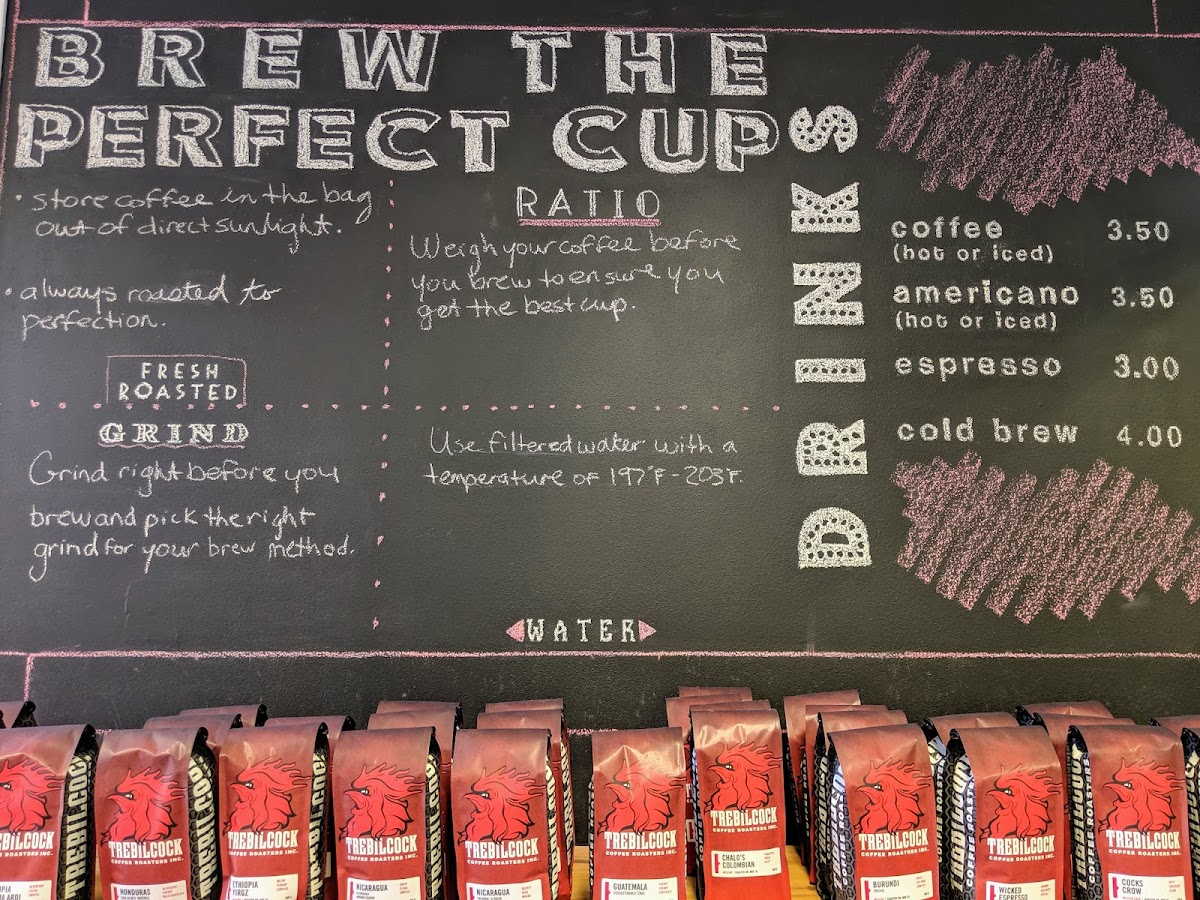 BREW THE
PERFECT CUP
• store coffee in the bag
out of direct sunlight.
• always roasted to
perfection.
FRESH
ROASTED
GRIND
Grind right before you
brew and pick the right
grind for your brew method.
RATIO
Weigh your coffee before
you brew to ensure you
get the best cup.
Use filtered water with a
temperature of 197°F - 203°F.
WATER
DRINKS
coffee 3.50
(hot or iced)
americano 3.50
(hot or iced)
espresso 3.00
cold brew 4.00
TREBILCOCK
COFFEE ROASTERS INC.
TREBILCOCK
COFFEE ROASTERS INC.
HONDURAS
TREBILCOCK
COFFEE ROASTERS INC.
ETHIOPIA
YIRGZ
TREBILCOCK
COFFEE ROASTERS INC.
NICARAGUA
TREBILCOCK
COFFEE ROASTERS INC.
NICARAGUA
TREBILCOCK
COFFEE ROASTERS INC.
GUATEMALA
TREBILCOCK
COFFEE ROASTERS INC.
CHALO'S
COLOMBIAN
TREBILCOCK
COFFEE ROASTERS INC.
BURUNDI
TREBILCOCK
COFFEE ROASTERS INC.
WICKED
ESPRESSO
TREBILCOCK
COFFEE ROASTERS INC.
COCKS
CROW